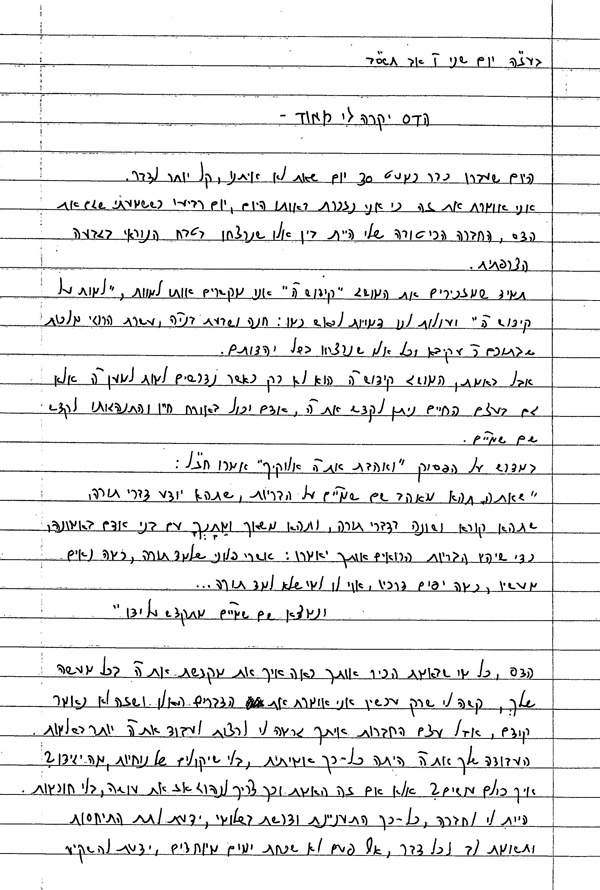 בעז"ה יום שני ז' אב תשס"ב
הדס יקרה לי מאוד -
היום שעברו כבר כמעט 30 יום שאת לא איתנו, קל יותר לדבר.
אני אומרת את זה כי אני נזכרת באותו היום, יום רביעי כששמעתי שגם את
הדס, החברה הכי טובה שלי היית בין אלו שנרצחו בטבח הנוראי בגבעה
הצרפתית.
תמיד שמזכירים את המושג "קידוש ה'" אנו מקשרים אותו למוות, "למות על
קידוש ה'" ועולות לנו דמויות לראש כמו: חנה ושבעת בניה, עשרת הרוגי מלכות
שבתוכם ר' עקיבא וכל אלו שנרצחו בשל יהדותם.
אבל באמת, המושג קידוש ה' הוא לא רק כאשר נדרשים למות למען ה' אלא
גם בעצם החיים ניתן לקדש את ה', אדם יכול באורח חייו והתנהגותו לקדש
שם שמיים.
במדרש על הפסוק "ואהבת את ה' אלוקיך" אמרו חז"ל:
"שאתה תהא מאהב שם שמיים על הבריות, שתהא יודע בדברי תורה,
שתהא קורא ושונה בדברי תורה, ותהא משאך ומתנך עם בני אדם באמונה,
כדי שיהיו הבריות הרואים אותך יאמרו: אשרי פלוני שלמד תורה, כמה נאים
מעשיו, כמה יפים דרכיו, אוי לו למי שלא למד תורה...
ונמצא שם שמיים מתקדש על ידו"
הדס, כל מי שבאמת הכיר אותך ראה איך את מקדשת את ה' בכל מעשה
שלך, קשה לי שרק עכשיו אני אומרת את הדברים האלו ושזה לא נאמר
קודם, אבל עצם החברות איתך גרמה לי לרצות לעבוד את ה' יותר בשלמות.
העבודה שלך את ה' היתה כל-כך אמיתית, בלי שיקולים של נוחיות, מה יגידו?
איך כולם עושים? אלא אם זה האמת וכך צריך לנהוג אז את עושה, בלי חוכמות.
היית לי לחברה, כל-כך התעניינת ודרשת בשלומי, ידעת לתת התייחסות
ותשומת לב לכל דבר, אף פעם לא שכחת ימים מיוחדים, ידעת להשקיע